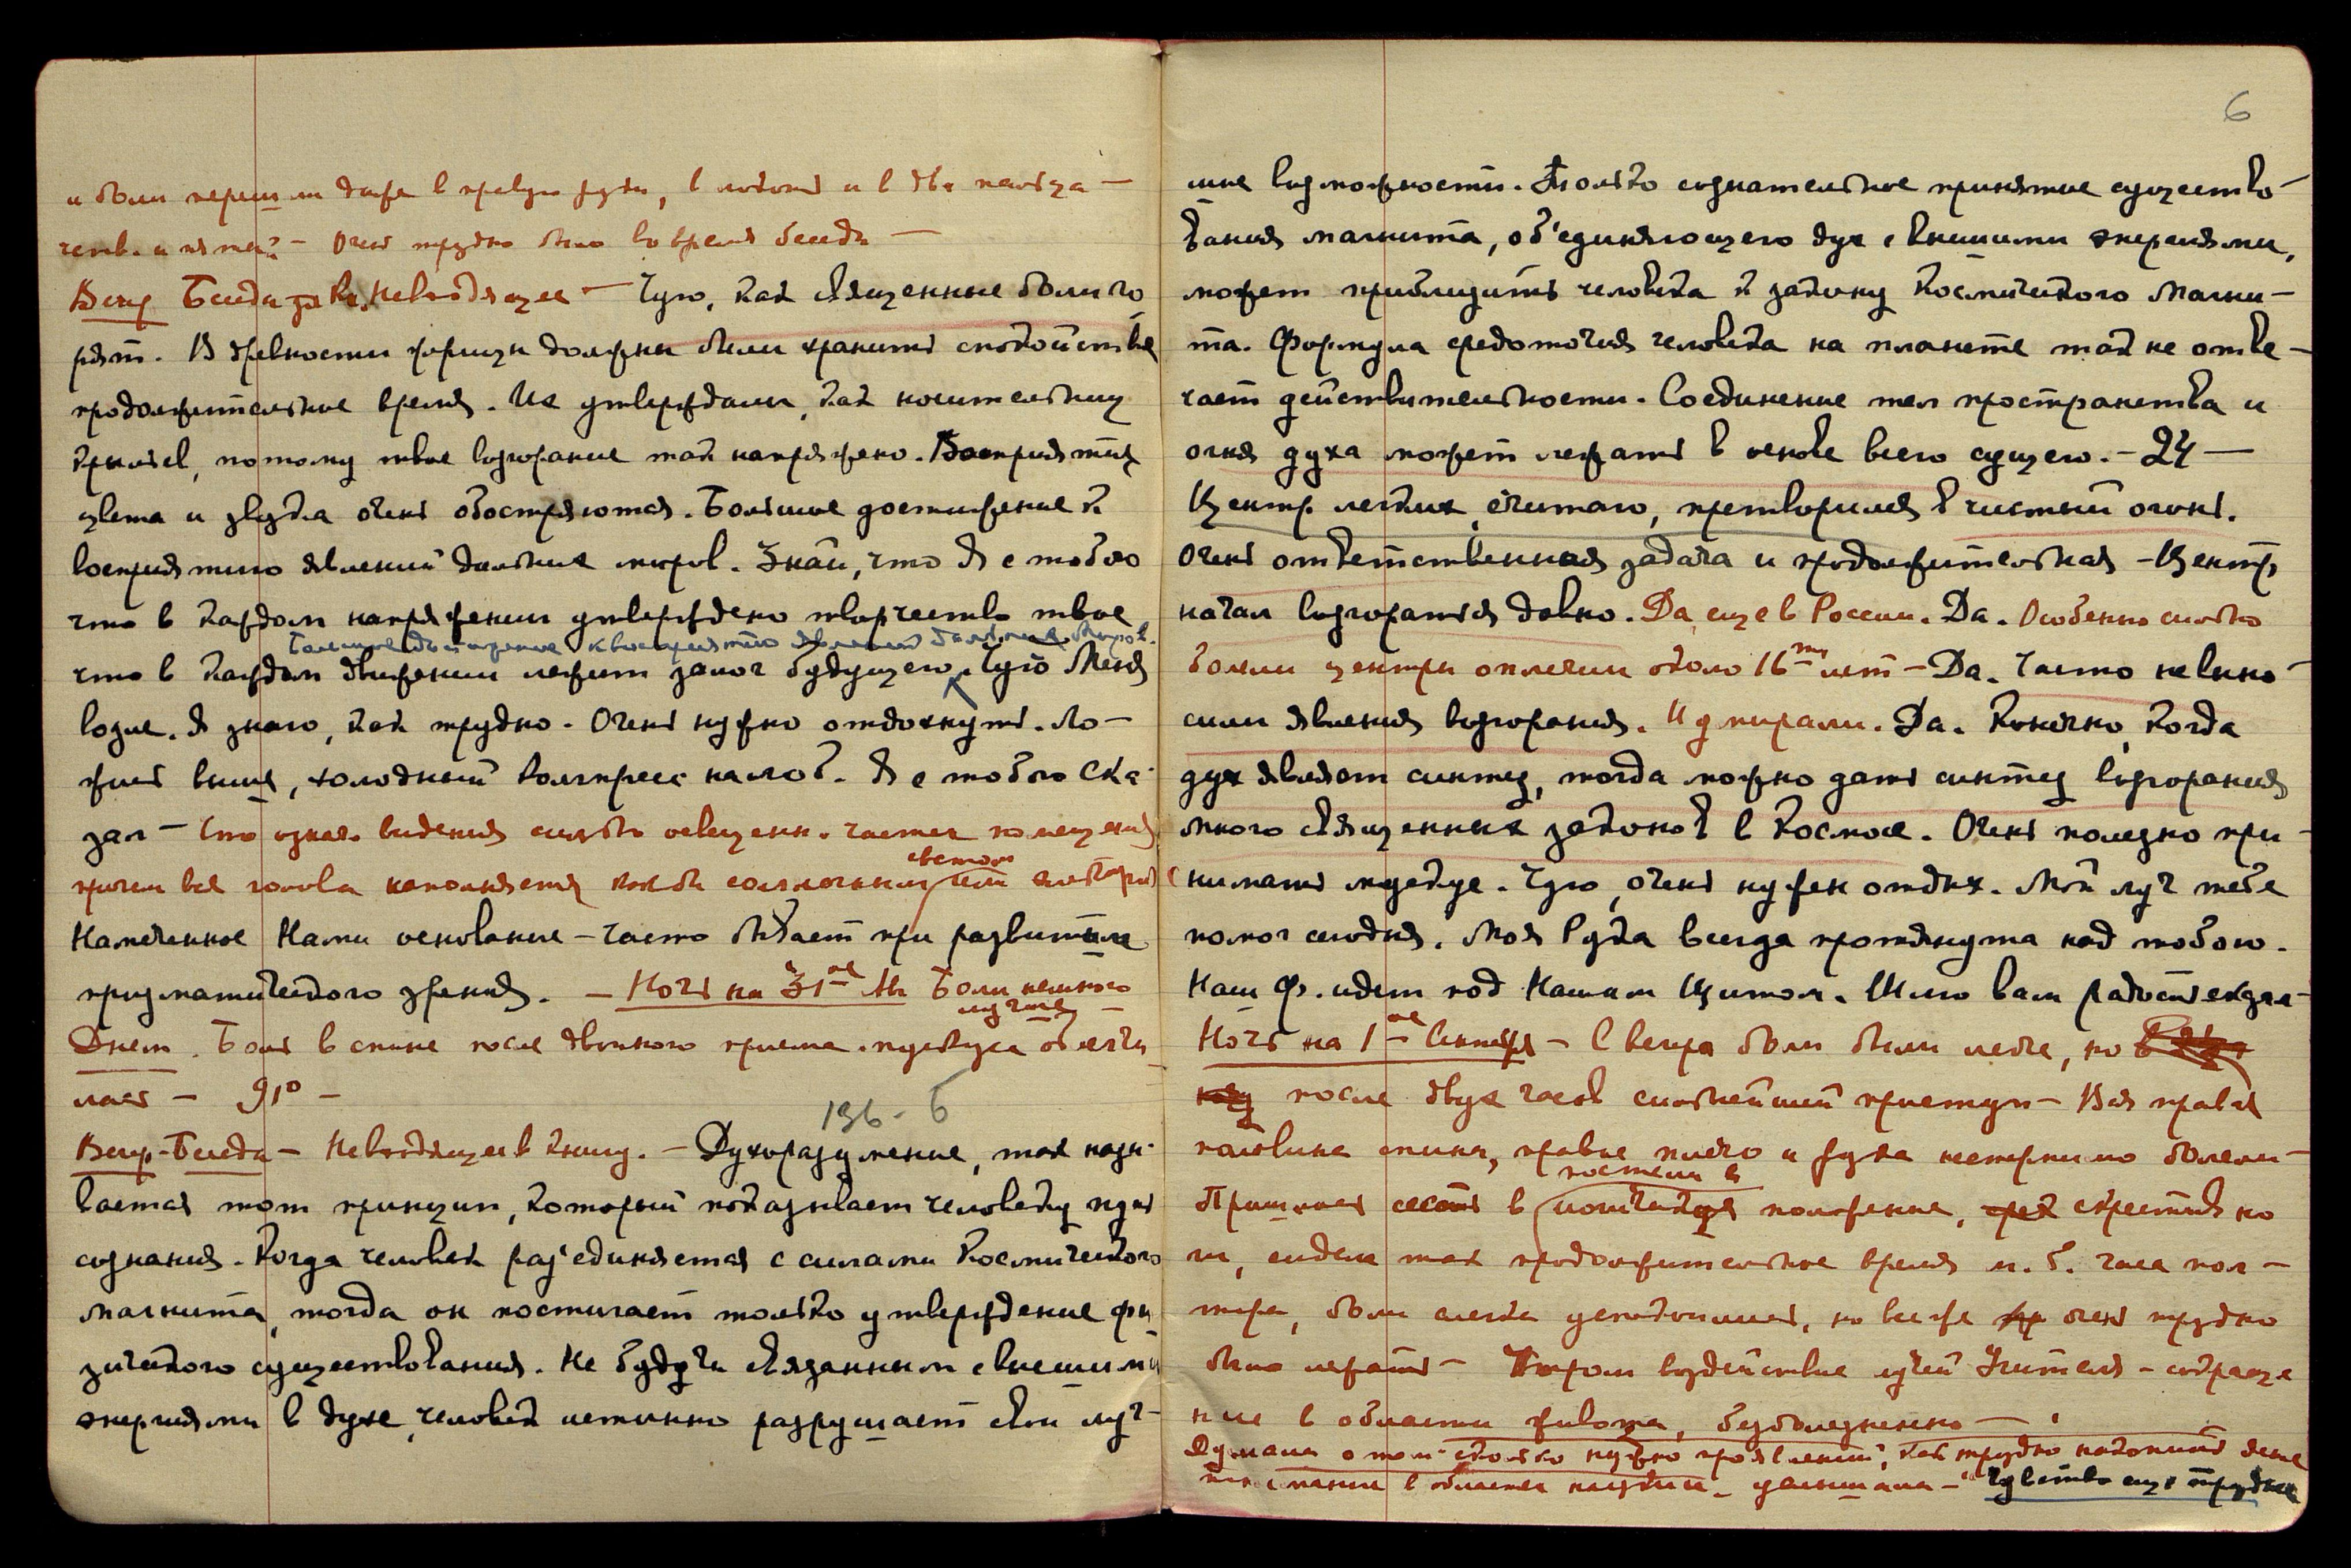 и боли перешли даже в правую руку, в локоть и в два пальца —
четв. и пятый — Очень трудно было во время беседы —
Вечер Беседа Невходящее — Чую, как священные боли го
рят. В древности жрицы должны были хранить спокойствие
продолжительное время. Их утверждали, как носительниц
крыльев, потому твое возгорание так напряжено. Восприятия
цвета и звука очень обостряются. Большое достижение к
восприятию явлений дальних миров. Знай, что Я с тобою
что в каждом напряжении утверждено творчество твое
Большое достижение к восприятию явлений дальних миров.
что в каждом движении лежит залог будущего. Чую Меня
возле. Я знаю, как трудно. Очень нужно отдохнуть. Ло-
жись выше, холодный компресс на лоб. Я с тобою Ска-
зал — Что означ. видения сильно освещенн. частей помещения
светом
причем вся голова наполняется как бы солнечным или
Намеченное Нами основание — часто бывает при развитии
призматического зрения. — Ночь на 31ое Ав Боли немного
лучше —
Днем. Боль в спине после двойного приема мускуса облегчи
лась — 91° —
136 - б
Вечер - Беседа — Невходящее в книгу. — Духоразумение, так назы-
вается тот принцип, который показывает человеку пути
сознания. Когда человек раз'единяется с силами Космического
магнита, тогда он постигает только утверждение фи
зического существования. Не будучи связанным с внешними
энергиями в духе, человек истинно разрушает свои луч-
6
шие возможности. Только сознательное принятие существо-
вания магнита, об'единяющего дух с внешними энергиями,
может приблизить человека к закону Космического Магни-
та. Формула средоточия человека на планете так не отве-
чает действительности. Соединение тел пространства и
огня духа может лежать в основе всего сущего. — 24 —
Центр легких, считаю, претворился в чистый огонь.
Очень ответственная задача и продолжительная — Центр
начал возгораться давно. Да, еще в России. Да. Особенно сильно
болели центры оплечии около 16ти лет — Да. Часто не выно-
сили явления возгорания. И умирали. Да. Конечно, когда
дух являет синтез, тогда можно дать синтез возгорания
много священных законов в Космосе. Очень полезно при-
нимать мускус. Чую, очень нужен отдых. Мой луч тебе
помог сегодня. Моя Рука всегда протянута над тобою.
Наш Ф. идет под Нашим Щитом. Шлю вам радость сказал-
Ночь на 1ое Сентября — С вечера боли были легче, но
после двух часов сильнейший приступ — Вся правая
половина спины, правое плечо и рука нестерпимо болели —
постели в
Пришлось сесть в положение, скрестив но
ги, сидела так продолжительное время м. б. часа пол-
тора, боли слегка успокоились, но все же очень трудно
было лежать — Утром воздействие лучей Учителя — сокраще
ние в области живота, безболезненно —
Думала о том сколько нужно проявлений, как трудно накопить даже
в области науки — услышала — "Чувство еще труднее